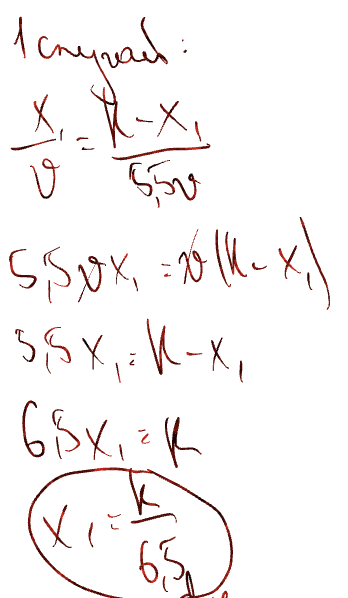 1 случай:
x₁/v = k - x₁/5,5v
5,5vx₁ = v(k - x₁)
5,5x₁ = k - x₁
6,5x₁ = k
x₁ = k/6,5